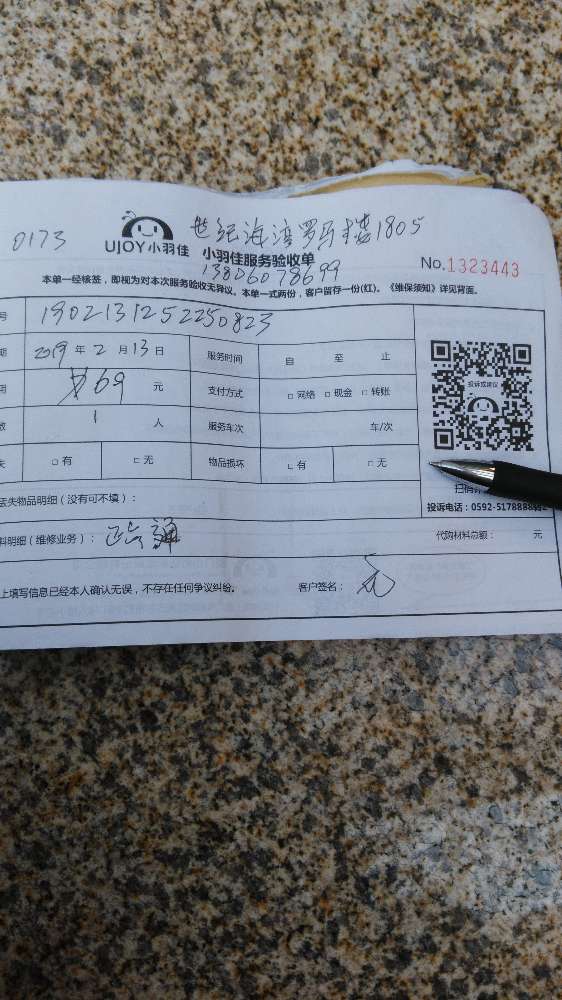 世纪海湾罗马楼1805
0173
UJOY小羽佳 小羽佳服务验收单
13806078699
No.1323443
本单一经核签，即视为对本次服务验收无异议。本单一式两份，客户留存一份(红)。《维保须知》详见背面。
号 1902131252250823
期 2019 年 2 月 13 日 服务时间 自 至 止
用 ¥69 元 支付方式 □ 网络 □ 现金 □ 转账
数 1 人 服务车次 车/次
失 □ 有 □ 无 物品损坏 □ 有 □ 无
投诉或建议
扫码
投诉电话：0592-5178888
丢失物品明细（没有可不填）：
料明细（维修业务）： 代购材料总额： 元
上填写信息已经本人确认无误，不存在任何争议纠纷。 客户签名：